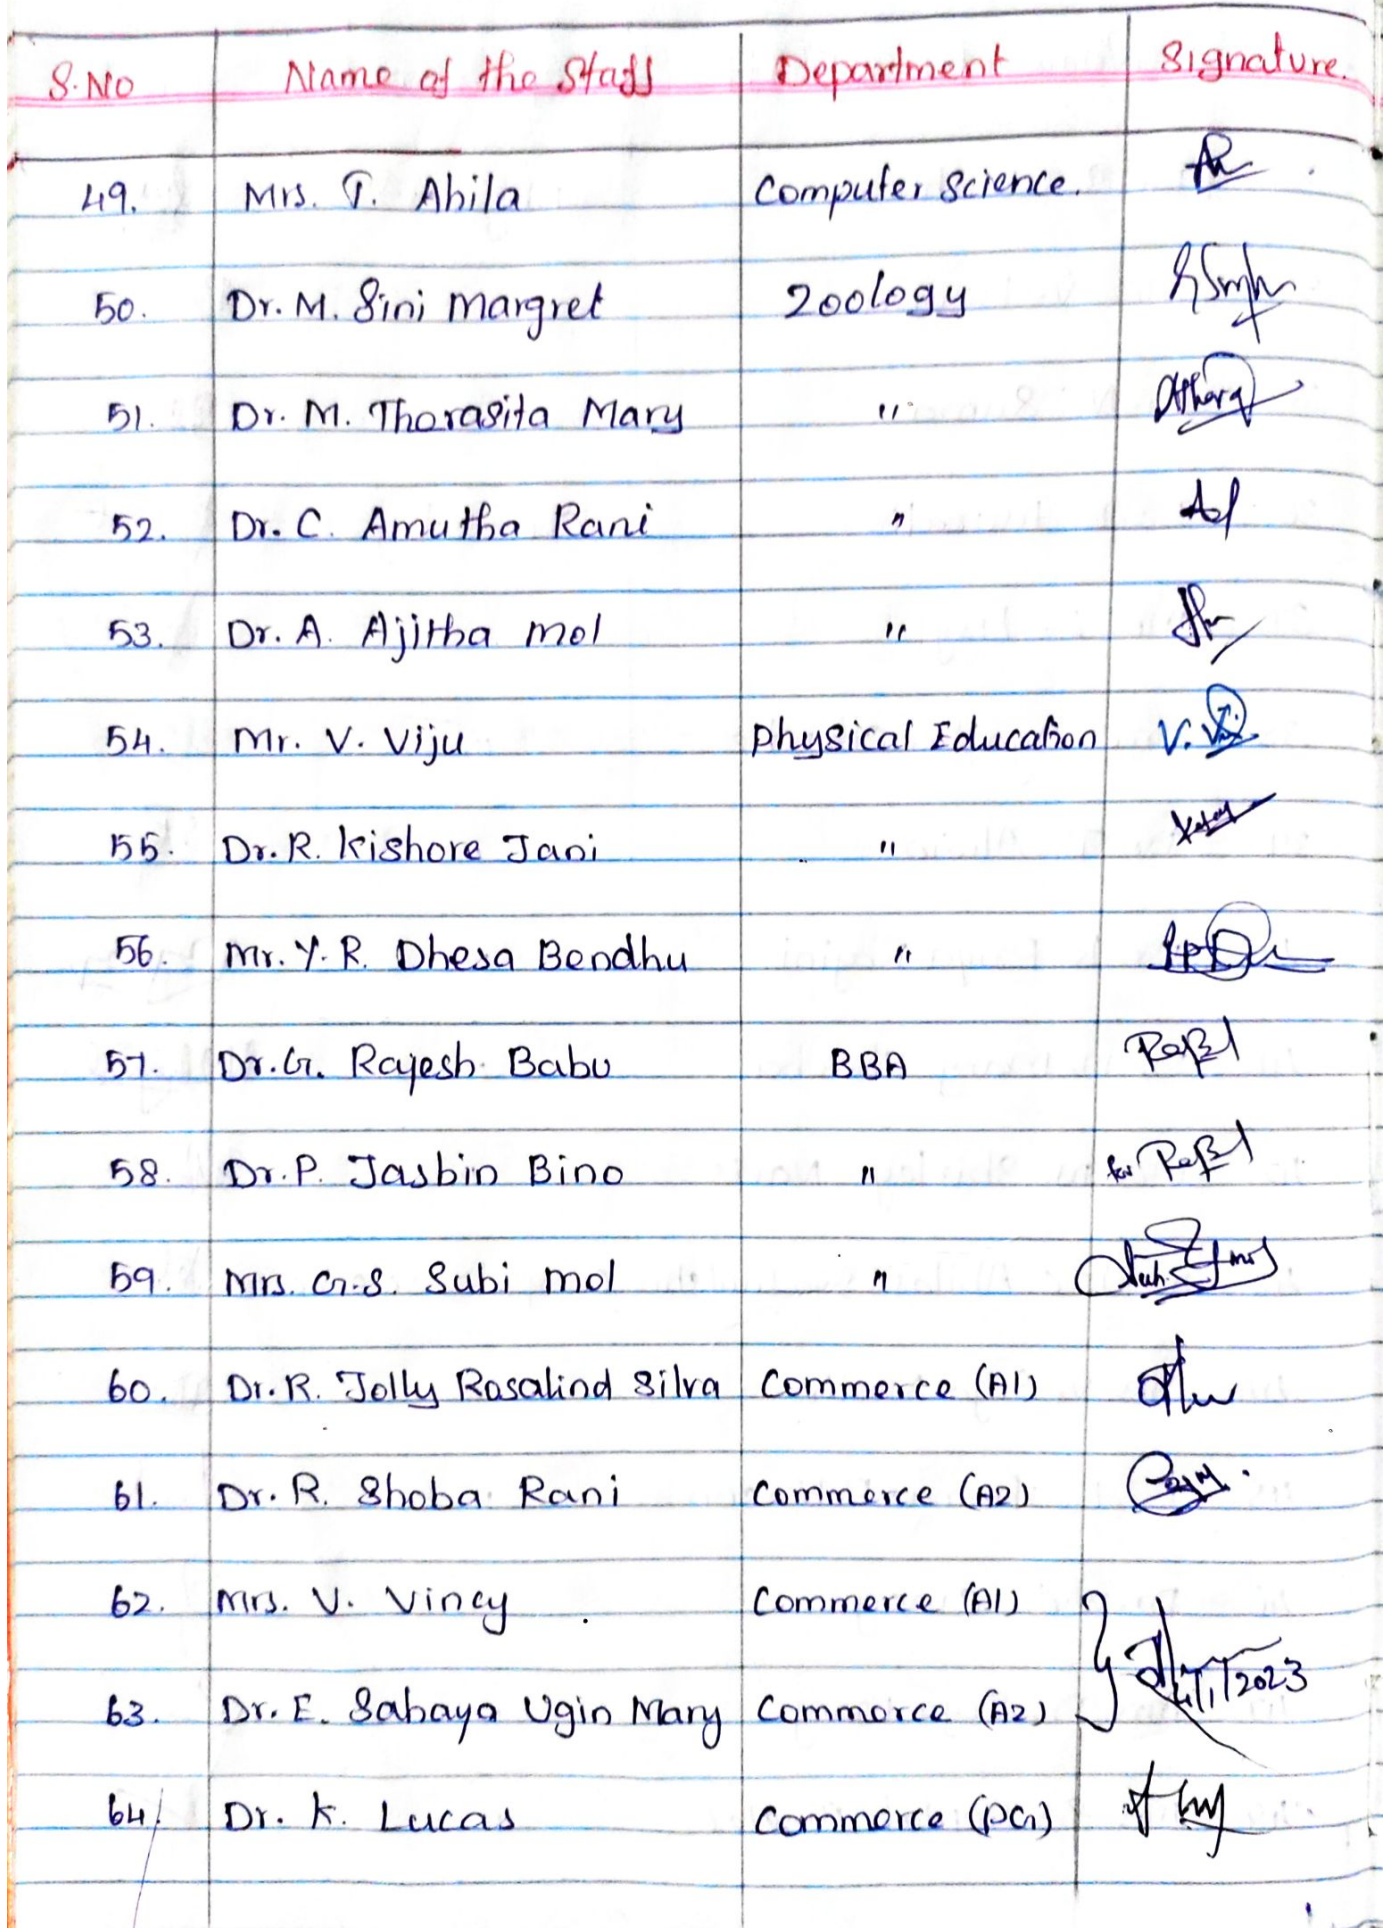 S.No Name of the Staff Department Signature.
49. Mrs. T. Ahila Computer Science.
50. Dr. M. Sini Margret Zoology
51. Dr. M. Tharasita Mary "
52. Dr. C. Amutha Rani "
53. Dr. A. Ajitha Mol "
54. Mr. V. Viju Physical Education V.
55. Dr. R. Kishore Jani "
56. Mr. Y. R. Dhesa Bendhu "
57. Dr. G. Rajesh Babu BBA
58. Dr. P. Jasbin Bino " for
59. Mrs. G.S. Subi Mol "
60. Dr. R. Jolly Rosalind Silva Commerce (A1)
61. Dr. R. Shoba Rani Commerce (A2)
62. Mrs. V. Vincy Commerce (A1)
63. Dr. E. Sahaya Ugin Mary Commerce (A2)
64. Dr. K. Lucas Commerce (PG)